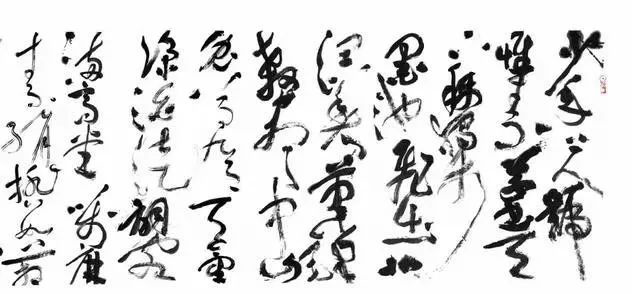 少年上人號
懷素草書天
下稱獨步
墨池飛出北
溟魚筆鋒
殺盡中山
兔八九月天氣
涼酒徒詞客
滿高堂箋麻
素絹排數箱